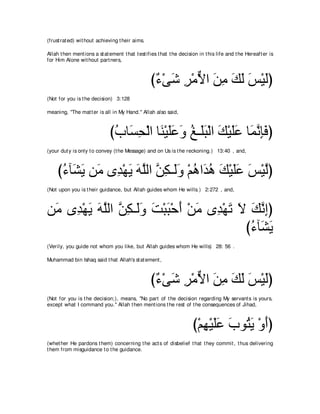 (frustrated) without achieving their aims.
Allah then mentions a statement that testifies that the decision in this life and the Hereafter is
for Him Alone without partners,
(لَيْسَ لَكَ مِنَ الاٌّمْرِ شَىْءٌ)
(Not for you is the decision) 3:128
meaning, "The matter is all in My Hand.'' Allah also said,
(فَإِنَّمَا عَلَيْكَ الْبَلَـغُ وَعَلَيْنَا الْحِسَابُ)
(your duty is only to convey (the Message) and on Us is the reckoning.) 13:40 , and,
(لَّيْسَ عَلَيْكَ هُدَاهُمْ وَلَـكِنَّ اللَّهَ يَهْدِى مَن يَشَآءُ)
(Not upon you is their guidance, but Allah guides whom He wills.) 2:272 , and,
(إِنَّكَ لاَ تَهْدِى مَنْ أَحْبَبْتَ وَلَـكِنَّ اللَّهَ يَهْدِى مَن
يَشَآءُ)
(Verily, you guide not whom you like, but Allah guides whom He wills) 28:56 .
Muhammad bin Ishaq said that Allah's statement,
(لَيْسَ لَكَ مِنَ الاٌّمْرِ شَىْءٌ)
(Not for you is the decision;), means, "No part of the decision regarding My servants is yours,
except what I command you.'' Allah then mentions the rest of the consequences of Jihad,
(أَوْ يَتُوبَ عَلَيْهِمْ)
(whether He pardons them) concerning the acts of disbelief that they commit, thus delivering
them from misguidance to the guidance.